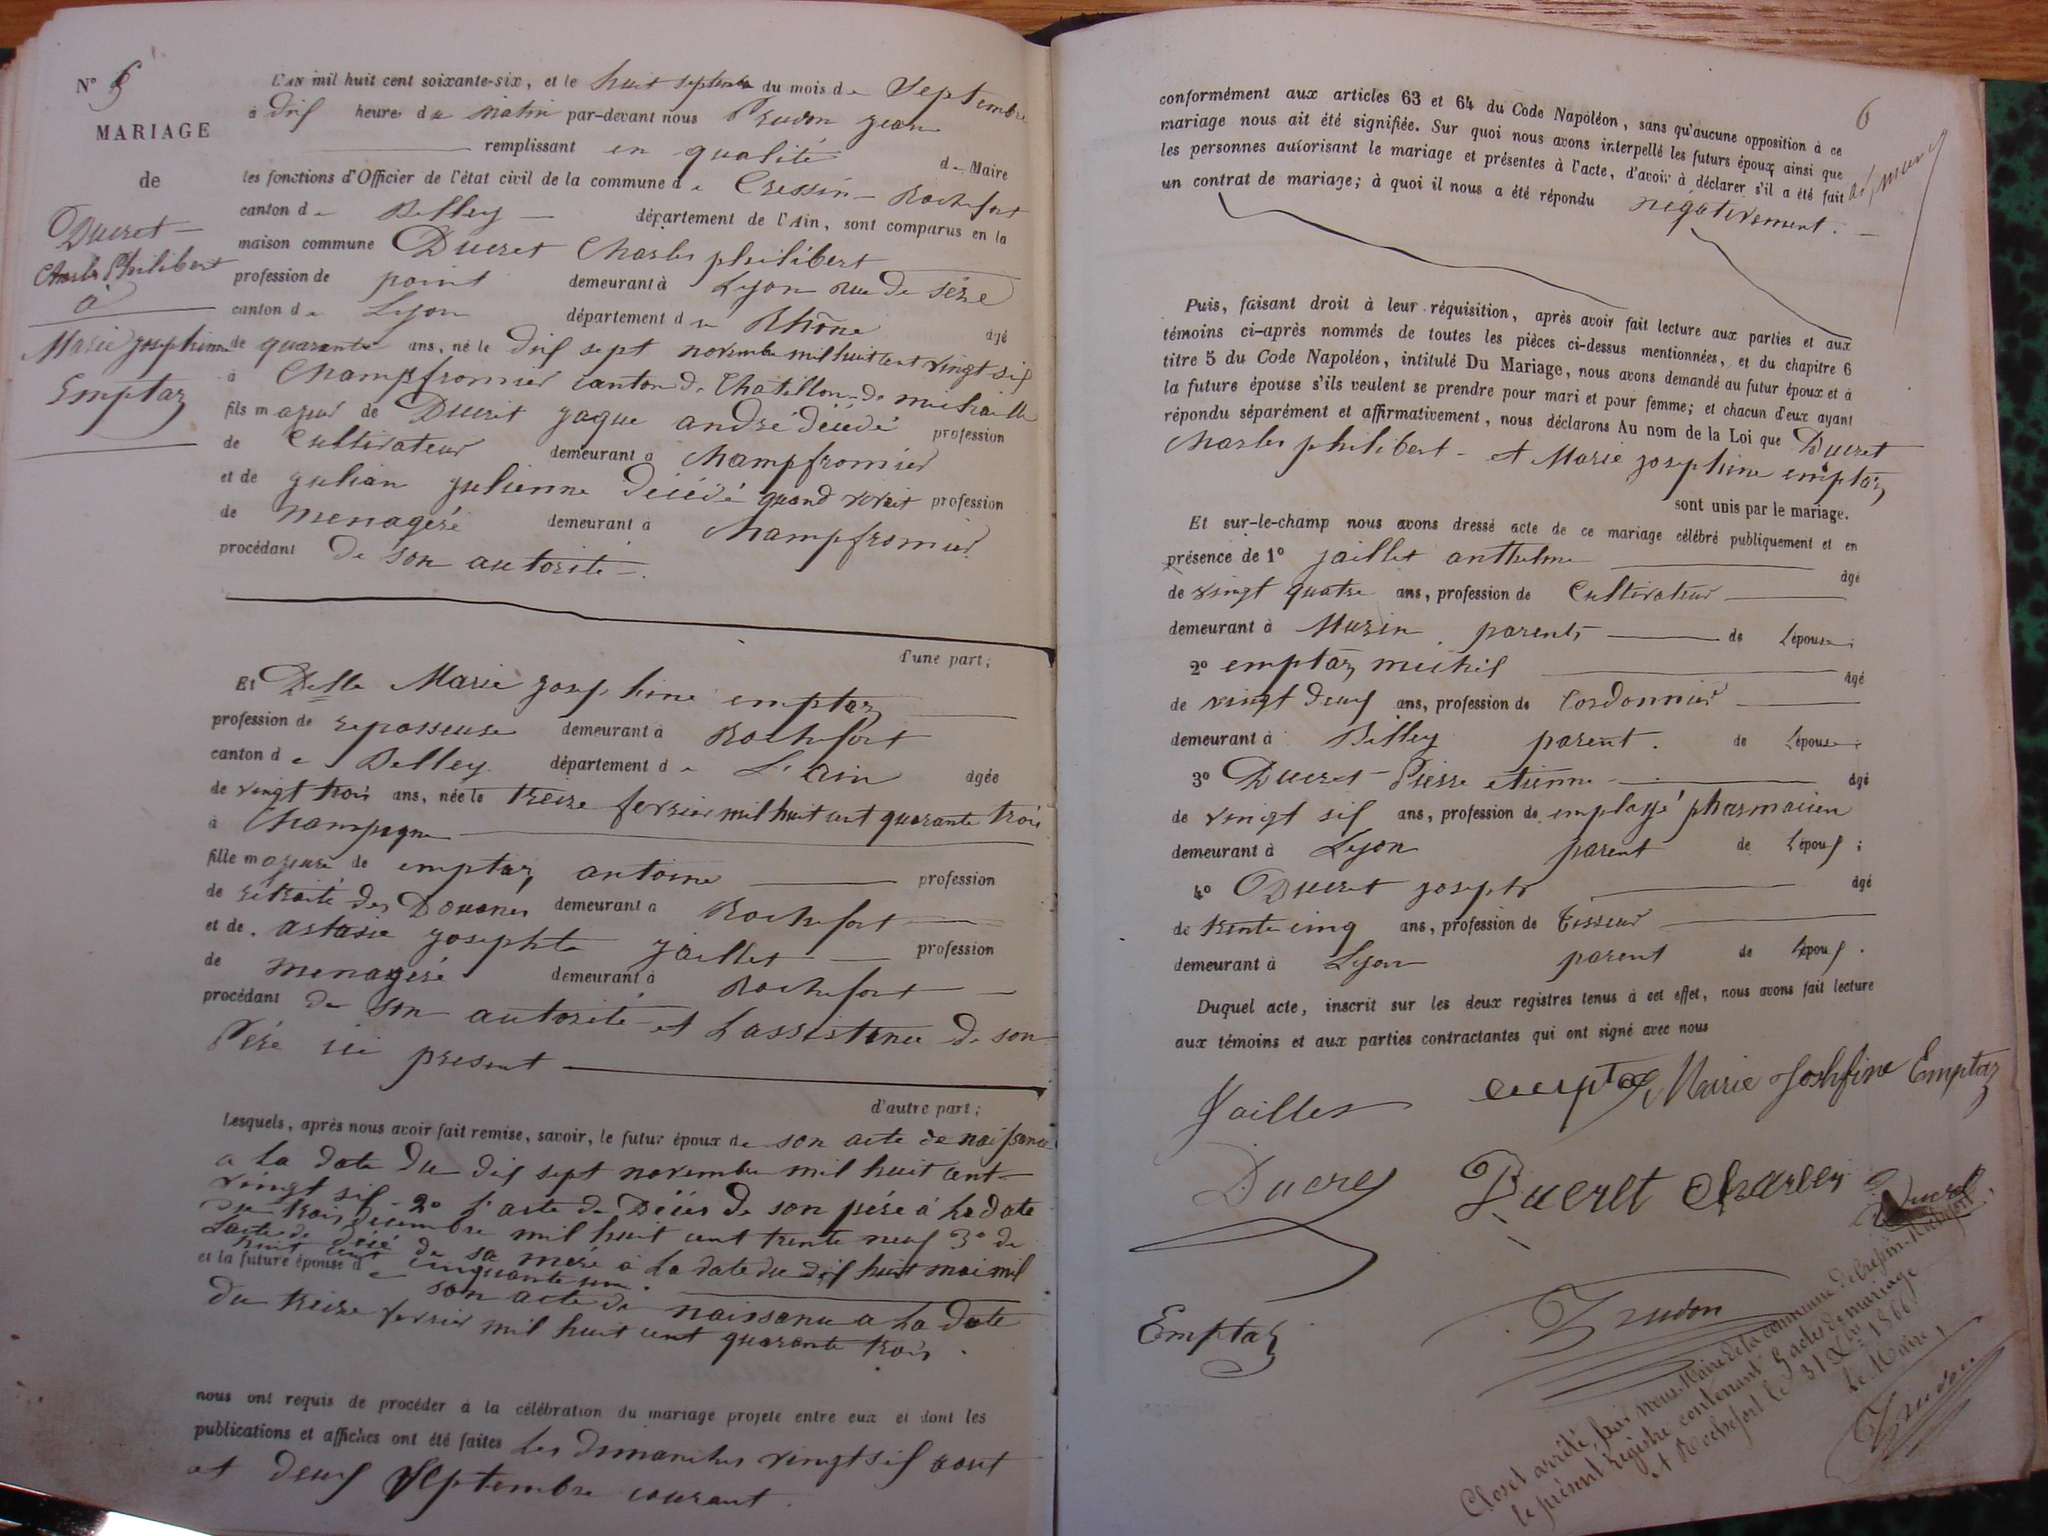 N° 5
MARIAGE
de
Ducret
Charles Philibert
à
Marie josephine
Emptaz
L'AN mil huit cent soixante-six, et le huit septembre du mois de Septembre
à dif heures du matin par-devant nous Trudon jean
remplissant en qualité de Maire
les fonctions d'Officier de l'état civil de la commune de Cressin-Rochefort
canton de Belley département de l'Ain, sont comparus en la
maison commune Ducret Charles philibert
profession de demeurant à Lyon rue de séze
canton de Lyon département du Rhône âgé
de quarante ans, né le dif sept novembre mil huit cent vingt sif
à Champfromier canton de Chatillon de michaille
fils majeur de Ducret jaque andré décédé profession
de Cultivateur demeurant à Champfromier
et de julian julienne décédé quand vivait profession
de menagéré demeurant à Champfromier
procédant de son autorité
d'une part;
Et Delle Marie josephine emptaz
profession de repasseuse demeurant à Rochefort
canton de Belley département de L'ain âgée
de vingt trois ans, née le treize fevrier mil huit cent quarante trois
à Champagne
fille majeure de emptaz antoine profession
de rétraité des Douanes demeurant à Rochefort
et de astasie josephte jaillet profession
de menagéré demeurant à Rochefort
procédant de son autorité et Lassistance de son
Péré ici present
d'autre part;
Lesquels, après nous avoir fait remise, savoir, le futur époux de son acte de naissance
a la date du dif sept novembre mil huit cent
vingt sif - 2° l'acte de Décés de son pére à la date
du trois décembre mil huit cent trente neuf 3° de
Lacte de décé de sa mére à la date du dif huit mai mil
huit cent cinquante un
et la future épouse de son acte de naissance a la date
du treize fevrier mil huit cent quarante trois.
nous ont requis de procéder à la célébration du mariage projeté entre eux et dont les
publications et affiches ont été faites les dimanches vingt sif aout
et deuf Septembre courant.
6
conformément aux articles 63 et 64 du Code Napoléon, sans qu'aucune opposition à ce
mariage nous ait été signifiée. Sur quoi nous avons interpellé les futurs époux, ainsi que
les personnes autorisant le mariage et présentes à l'acte, d'avoir à déclarer s'il a été fait
un contrat de mariage; à quoi il nous a été répondu négativement.
Puis, faisant droit à leur réquisition, après avoir fait lecture aux parties et aux
témoins ci-après nommés de toutes les pièces ci-dessus mentionnées, et du chapitre 6
titre 5 du Code Napoléon, intitulé Du Mariage, nous avons demandé au futur époux et à
la future épouse s'ils veulent se prendre pour mari et pour femme; et chacun d'eux ayant
répondu séparément et affirmativement, nous déclarons Au nom de la Loi que Ducret
Charles philibert - et Marie josephine emptaz
sont unis par le mariage.
Et sur-le-champ nous avons dressé acte de ce mariage célébré publiquement et en
présence de 1° jaillet anthelme âgé
de vingt quatre ans, profession de Cultivateur
demeurant à Muzin parents de Lépouse;
2° emptaz michel âgé
de vingt deuf ans, profession de Cordonnier
demeurant à Belley parent. de Lépouse;
3° Ducret Pierre etienne âgé
de vingt sif ans, profession de employé pharmacien
demeurant à Lyon parent de Lépouf;
4° Ducret joseph âgé
de trente cinq ans, profession de Tisseur
demeurant à Lyon parent de Lépouf.
Duquel acte, inscrit sur les deux registres tenus à cet effet, nous avons fait lecture
aux témoins et aux parties contractantes qui ont signé avec nous
Jaillet emptaz Marie Joshfine Emptaz
Ducret Ducret Charles Ducret
Emptaz Trudon
Clos et arrêté par nous Maire de la commune de Cressin-Rochefort,
le présent Registre contenant 5 actes de mariage
à Rochefort le 31 Xbre 1866
Le Maire,
Trudon